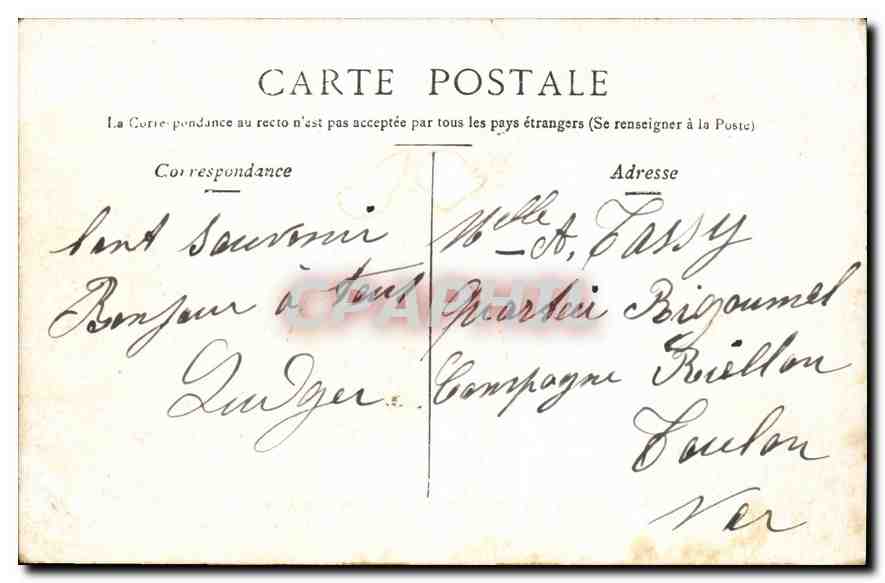 CARTE POSTALE
La Correspondance au recto n'est pas acceptée par tous les pays étrangers (Se renseigner à la Poste)
Correspondance
Adresse
bont Souvenir
Bonjour à tous
Melle A, Tassy
Quartier Rigoumel
Compagne Riellon
Toulon
Var
CPAPHIL